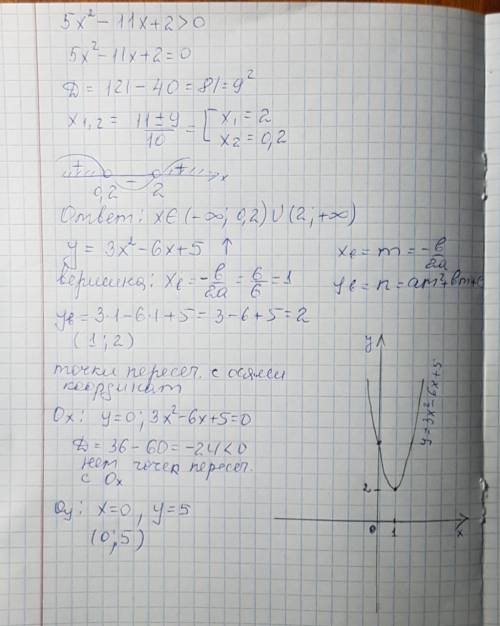 5x² - 11x + 2 > 0
5x² - 11x + 2 = 0
D = 121 - 40 = 81 = 9²
x₁,₂ = (11 ± 9)/10 = [ x₁ = 2
x₂ = 0,2
+ - + x
0,2 2
Ответ: x ∈ (-∞; 0,2) ∪ (2; +∞)
y = 3x² - 6x + 5 ↑
xв = m = -в/2a
вершина: xв = -в/2a = 6/6 = 1
yв = n = am² + вm + c
yв = 3·1 - 6·1 + 5 = 3 - 6 + 5 = 2
(1; 2)
точки пересеч. с осями
координат
Ox: y = 0; 3x² - 6x + 5 = 0
D = 36 - 60 = -24 < 0
нет точек пересеч.
с Ox
Oy: x = 0, y = 5
(0; 5)
y
y = 3x² - 6x + 5
2
0 1 x